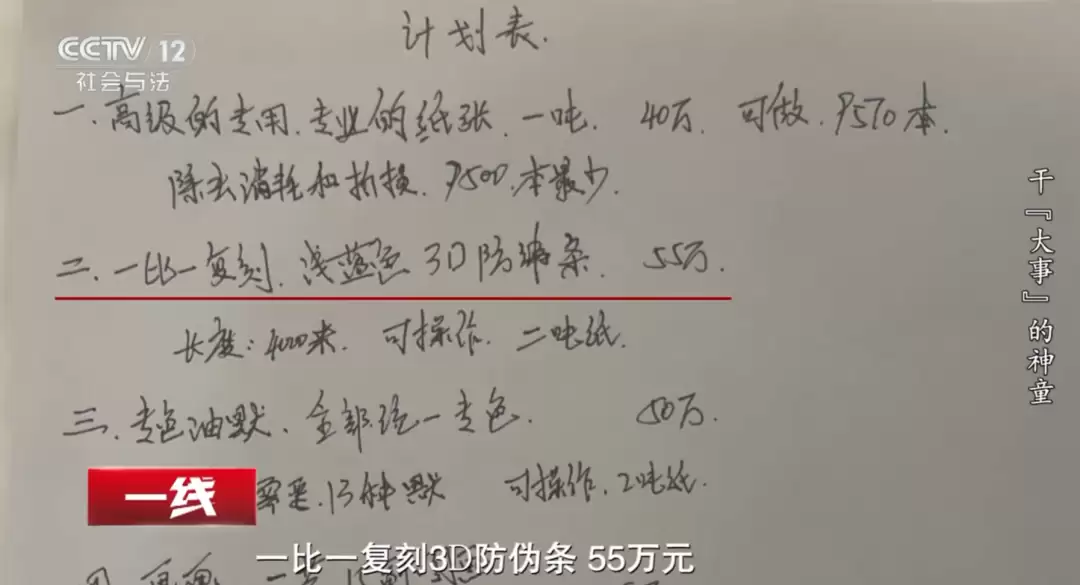 计划表.
CCTV 12
社会与法
一.高级的专用.专业的纸张.一吨. 40万. 可做.9570本.
除去消耗和折损.9500.本最少.
二.一比一复刻.浅蓝色3D防绵条. 55万.
长度:4000米. 可操作.二吨纸.
三.专色油默.全部统一专色. 50万.
需要.13种默 可操作.2吨纸.
一线
一比一复刻3D防伪条 55万元
干『大事』的神童